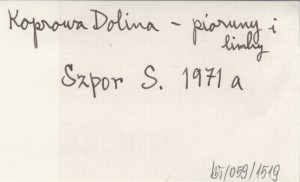 Koprowa Dolina - pioruny i
limby
Szpor S. 1971 a
bś/059/1519